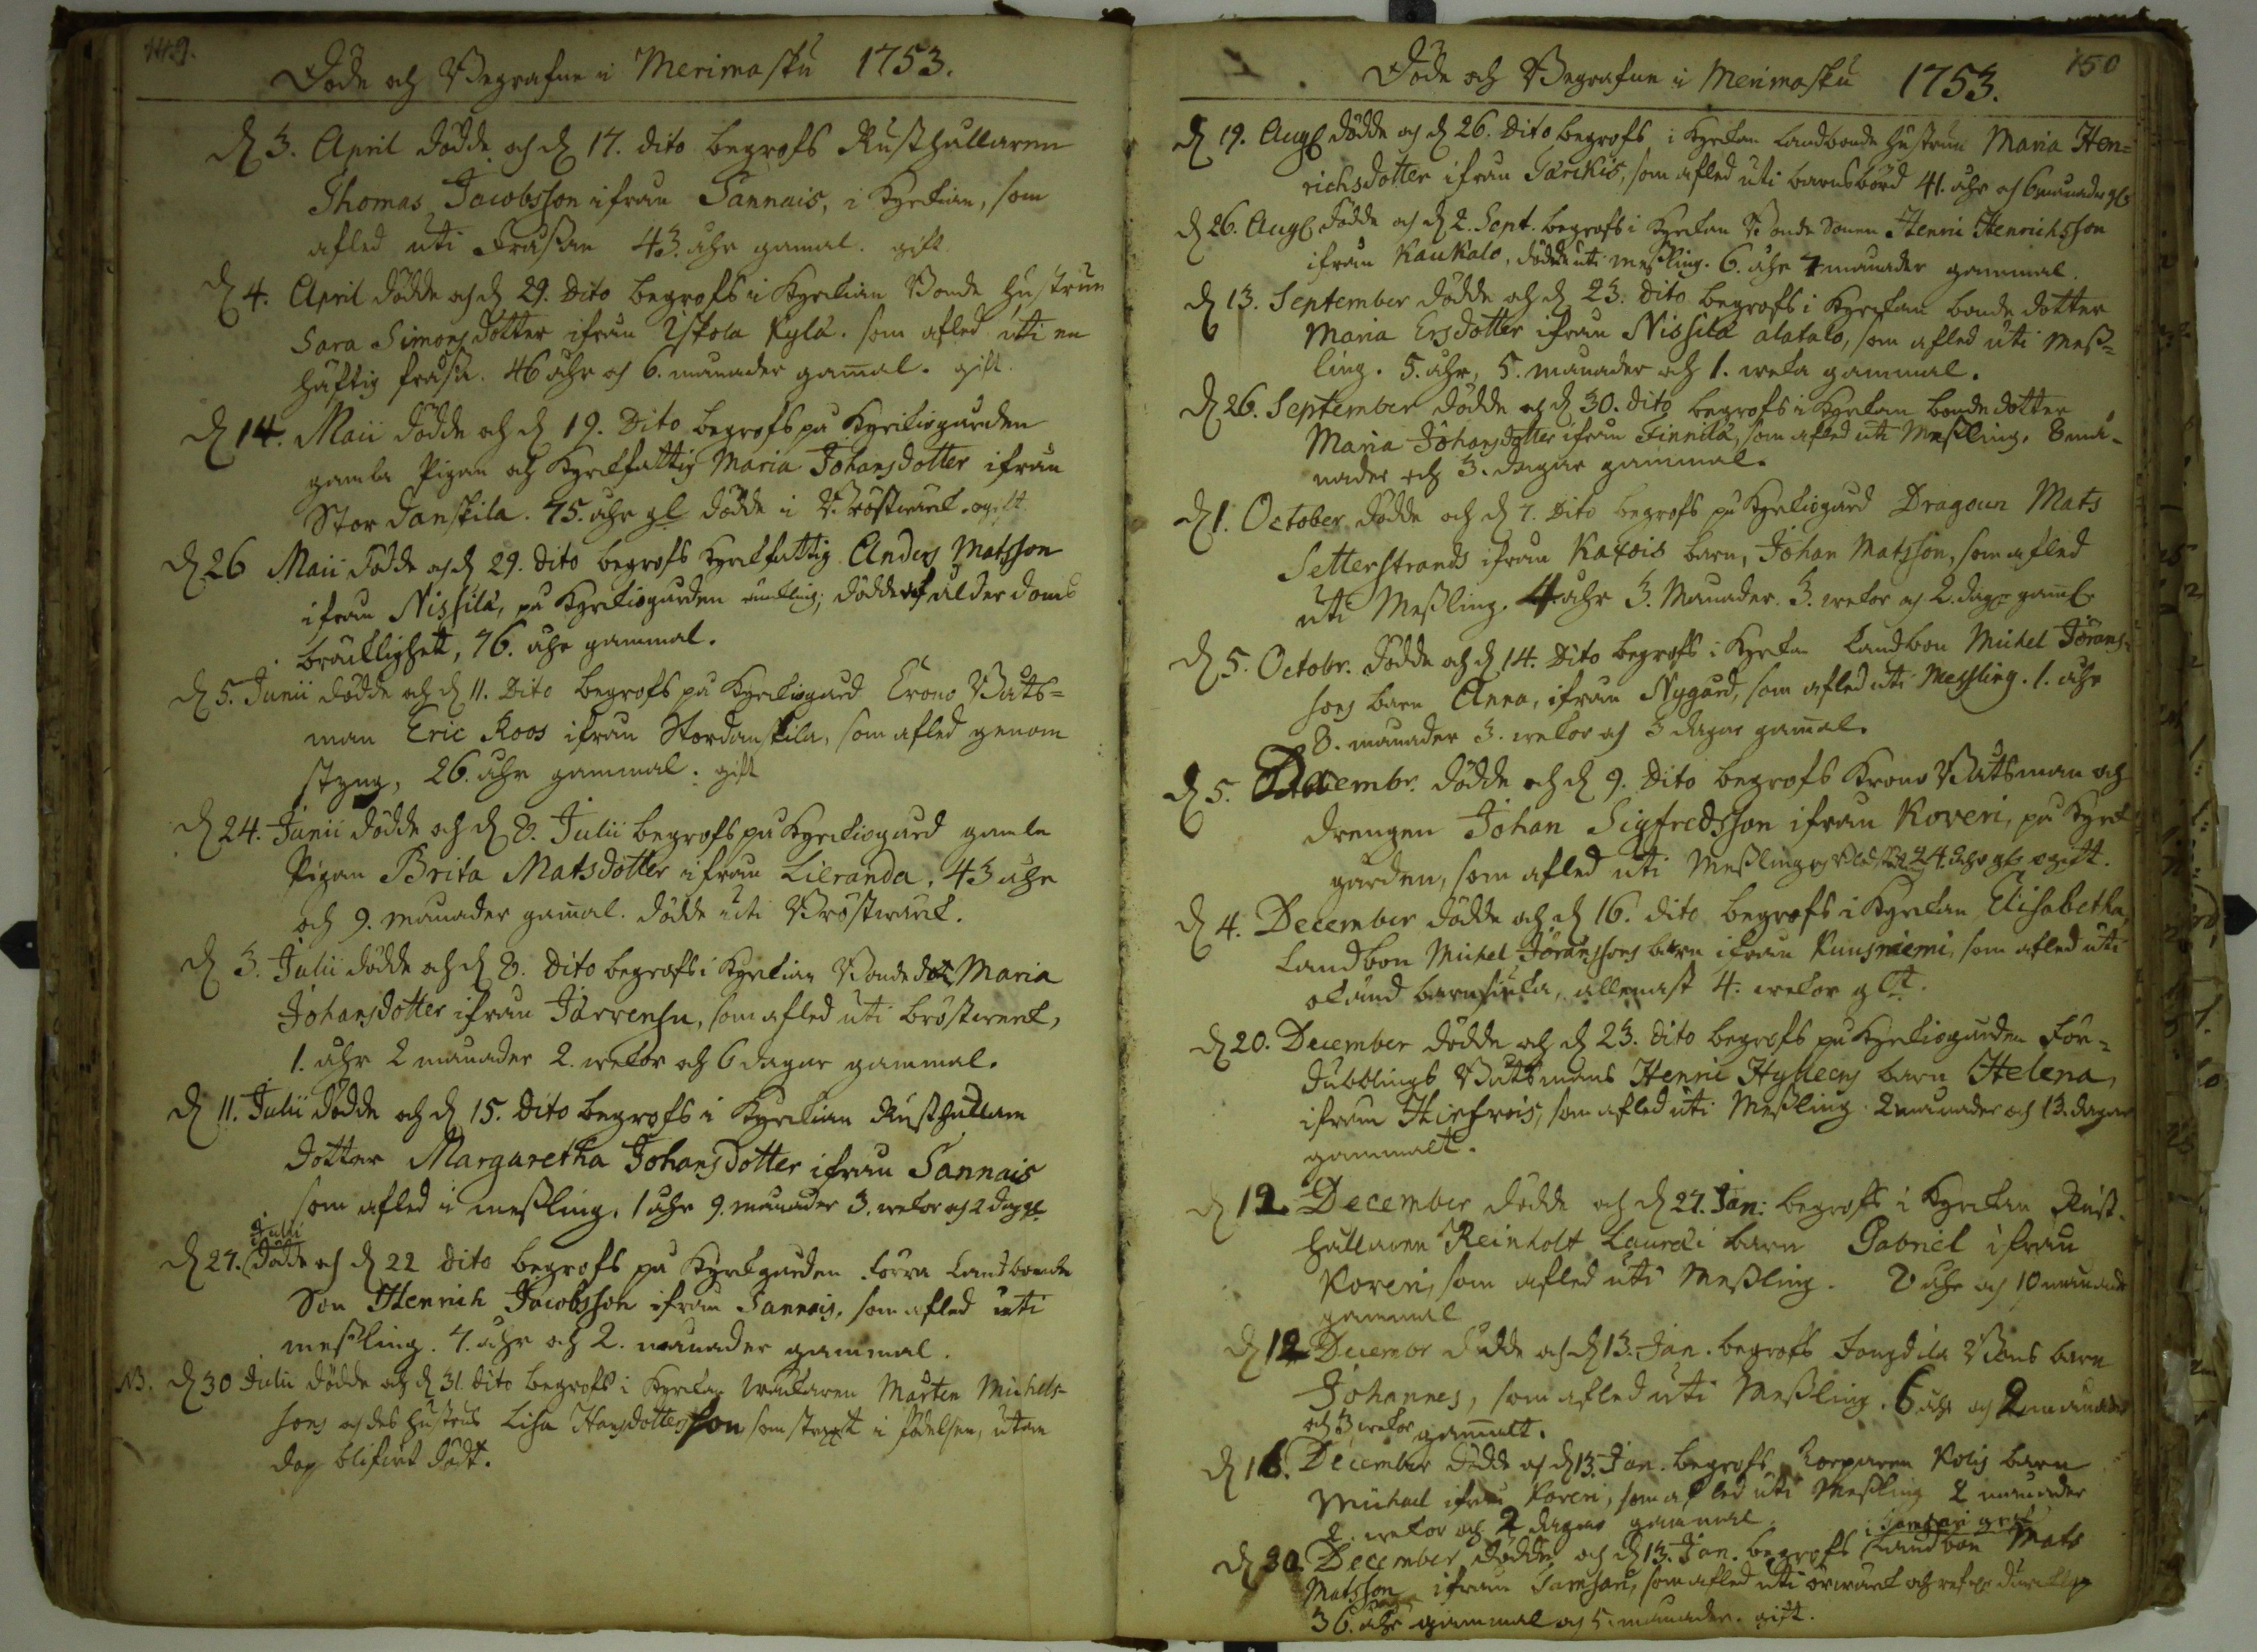 149.
Döde och Begrafne i Merimasku 1753.
D 3. April dödde och d 17. dito begrofs Rusthållaren
Thomas Jacobsson ifrån Sannais, i Kyrkian, som
afled uti Frässan 43. åhr gamal. gift
D 4. April dödde och d 29. Dito begrofs i Kyrkian Bonde hustrun
Sara Simonsdotter ifrån Iskola kylä. som afled uti en
häftig fråssa. 46 åhr och 6. månader gamal. gift.
D 14. Maii dödde och d 19. Dito begrofs på Kyrkiogården
gamla Pigan och Kyrkfattig Maria Johansdotter ifrån
Stor danskila. 75. åhr gl dödde i Bröstwärk. ogift
D 26 Maii dödde och d 29. dito begrofs Kyrkfattig Anders Matsson
ifrån Nissilä, på Kyrkiogården enkling, dödde af ålderdoms
bräcklighet, 76. åhr gammal.
D 5. Junii dödde och d 11. Dito begrofs på Kyrkiogård Crono Båts=
man Eric Roos ifrån Stordanskila, som afled genom
styng, 26. åhr gammal. gift
D 24. Junii dödde och d 8. Julii begrofs på Kyrkiogård gamle
Pigan Brita Matsdotter ifrån Lieranda, 43 åhr
och 9. månader gamal. dödde uti Bröstwärk.
D 3. Julii dödde och d 8. Dito begrofs i Kyrkian Bonde dott Maria
Johansdotter ifrån Järvensu, som afled uti bröstwerk,
1. åhr 2 månader 2. wekor och 6 dagar gammal.
D 11. Julii dödde och d 15. dito begrofs i Kyrkian Rusthållare
dotter Margaretha Johansdotter ifrån Sannais
som afled i messling, 1 åhr 9. månader 3. wekor och 2 dag gl
Julii
D 27. dödde och d 22 dito begrofs på Kyrkgården förra Landbonde
Son Henrich Jacobsson ifrån Sannais, som afled uti
messling. 7. åhr och 2. månader gammal.
NB. D 30 Julii dödde och d 31. dito begrofs i Kyrkan Mårten Michels=
sons och des hustrus Lisa Hansdotters son som straxt i födelsen, utan
dop blifwit dödt.
150
Döde och Begrafne i Merimasku 1753.
D 19. Aug dödde och d 26. Dito begrofs i Kyrkan Landbonde hustrun Maria Hen=
richsdotter ifrån Särkis, som afled uti barnsbörd 41. åhr och 6 månader gl
D 26. Aug dödde och d 2. Sept. begrofs i Kyrkan Bonde Sonen Henric Henrichsson
ifrån Kaukalo, dödde uti messling. 6. åhr 7 månader gammal.
D 13. September dödde och d 23. dito begrofs i Kyrkan bonde dotter
Maria Ersdotter ifrån Nissilä alatalo, som afled uti mess=
ling. 5. åhr, 5. månader och 1. weka gammal.
D 26. September dödde och d 30. dito begrofs i Kyrkan bonde dotter
Maria Johansdotter ifrån Finnilä, som afled uti Messling, 8 må=
nader och 3. dagar gammal.
D 1. October dödde och d 7. Dito begrofs på Kyrkiogård Dragoun Mats
Setterstrands ifrån Kaxois barn, Johan Matsson, som afled
uti Messling. 4. åhr 3. Månader. 3. wekor och 2. dagr gaml.
D 5. Octobr. dödde och d 14. Dito begrofs i Kyrkan Landbon Michel Jörans=
sons barn Anna, ifrån Nygård, som afled uti Messling. 1. åhr
8. månader 3. wekor och 3 dagar gamal.
D 5. Decembr. dödde och d 9. Dito begrofs Krono Båtsman och
drengen Johan Sigfredsson ifrån Koveri, på Kyrk
gården, som afled uti Messling 24. åhr gl ogift.
D 4. December dödde och d 16. dito begrofs i Kyrkan Elisabetha,
Landbon Michel Jöranssons barn ifrån Kuusniemi, som afled uti
okänd barnsiuka, allenast 4. wekor glt.
D 20. December dödde och d 23. dito begrofs på Kyrkiogården För=
dubblings Båtsmans Henric Hyllens barn Helena,
ifrån Hiefrois, som afled uti Messling. 2 månader och 13. dagar
gammalt.
D 12. December dödde och d 27. Jan: begrofs i Kyrkan Rust=
hållaren Reinholt Lauraei barn Gabriel ifrån
Koveri, som afled uti Messling. 8 åhr och 10 månader
gammal
D 12 Decembr dödde och d 13. Jan. begrofs Bons barn
Johannes, som afled uti Messling. 6 åhr och 2 månader
och 3 wekor gammalt.
D 16. December dödde och d 13. Jan. begrofs Korporen Kolis barn
Michael ifrån Koveri, som afled uti Messling 2 månader
2. wekor och 2 dagar gammal.
i Samsari graf
D 30. December dödde och d 13. Jan. begrofs Landbon Mats
Matsson ifrån Samsari, som afled uti
36. åhr gammal och 5. månader. gift.